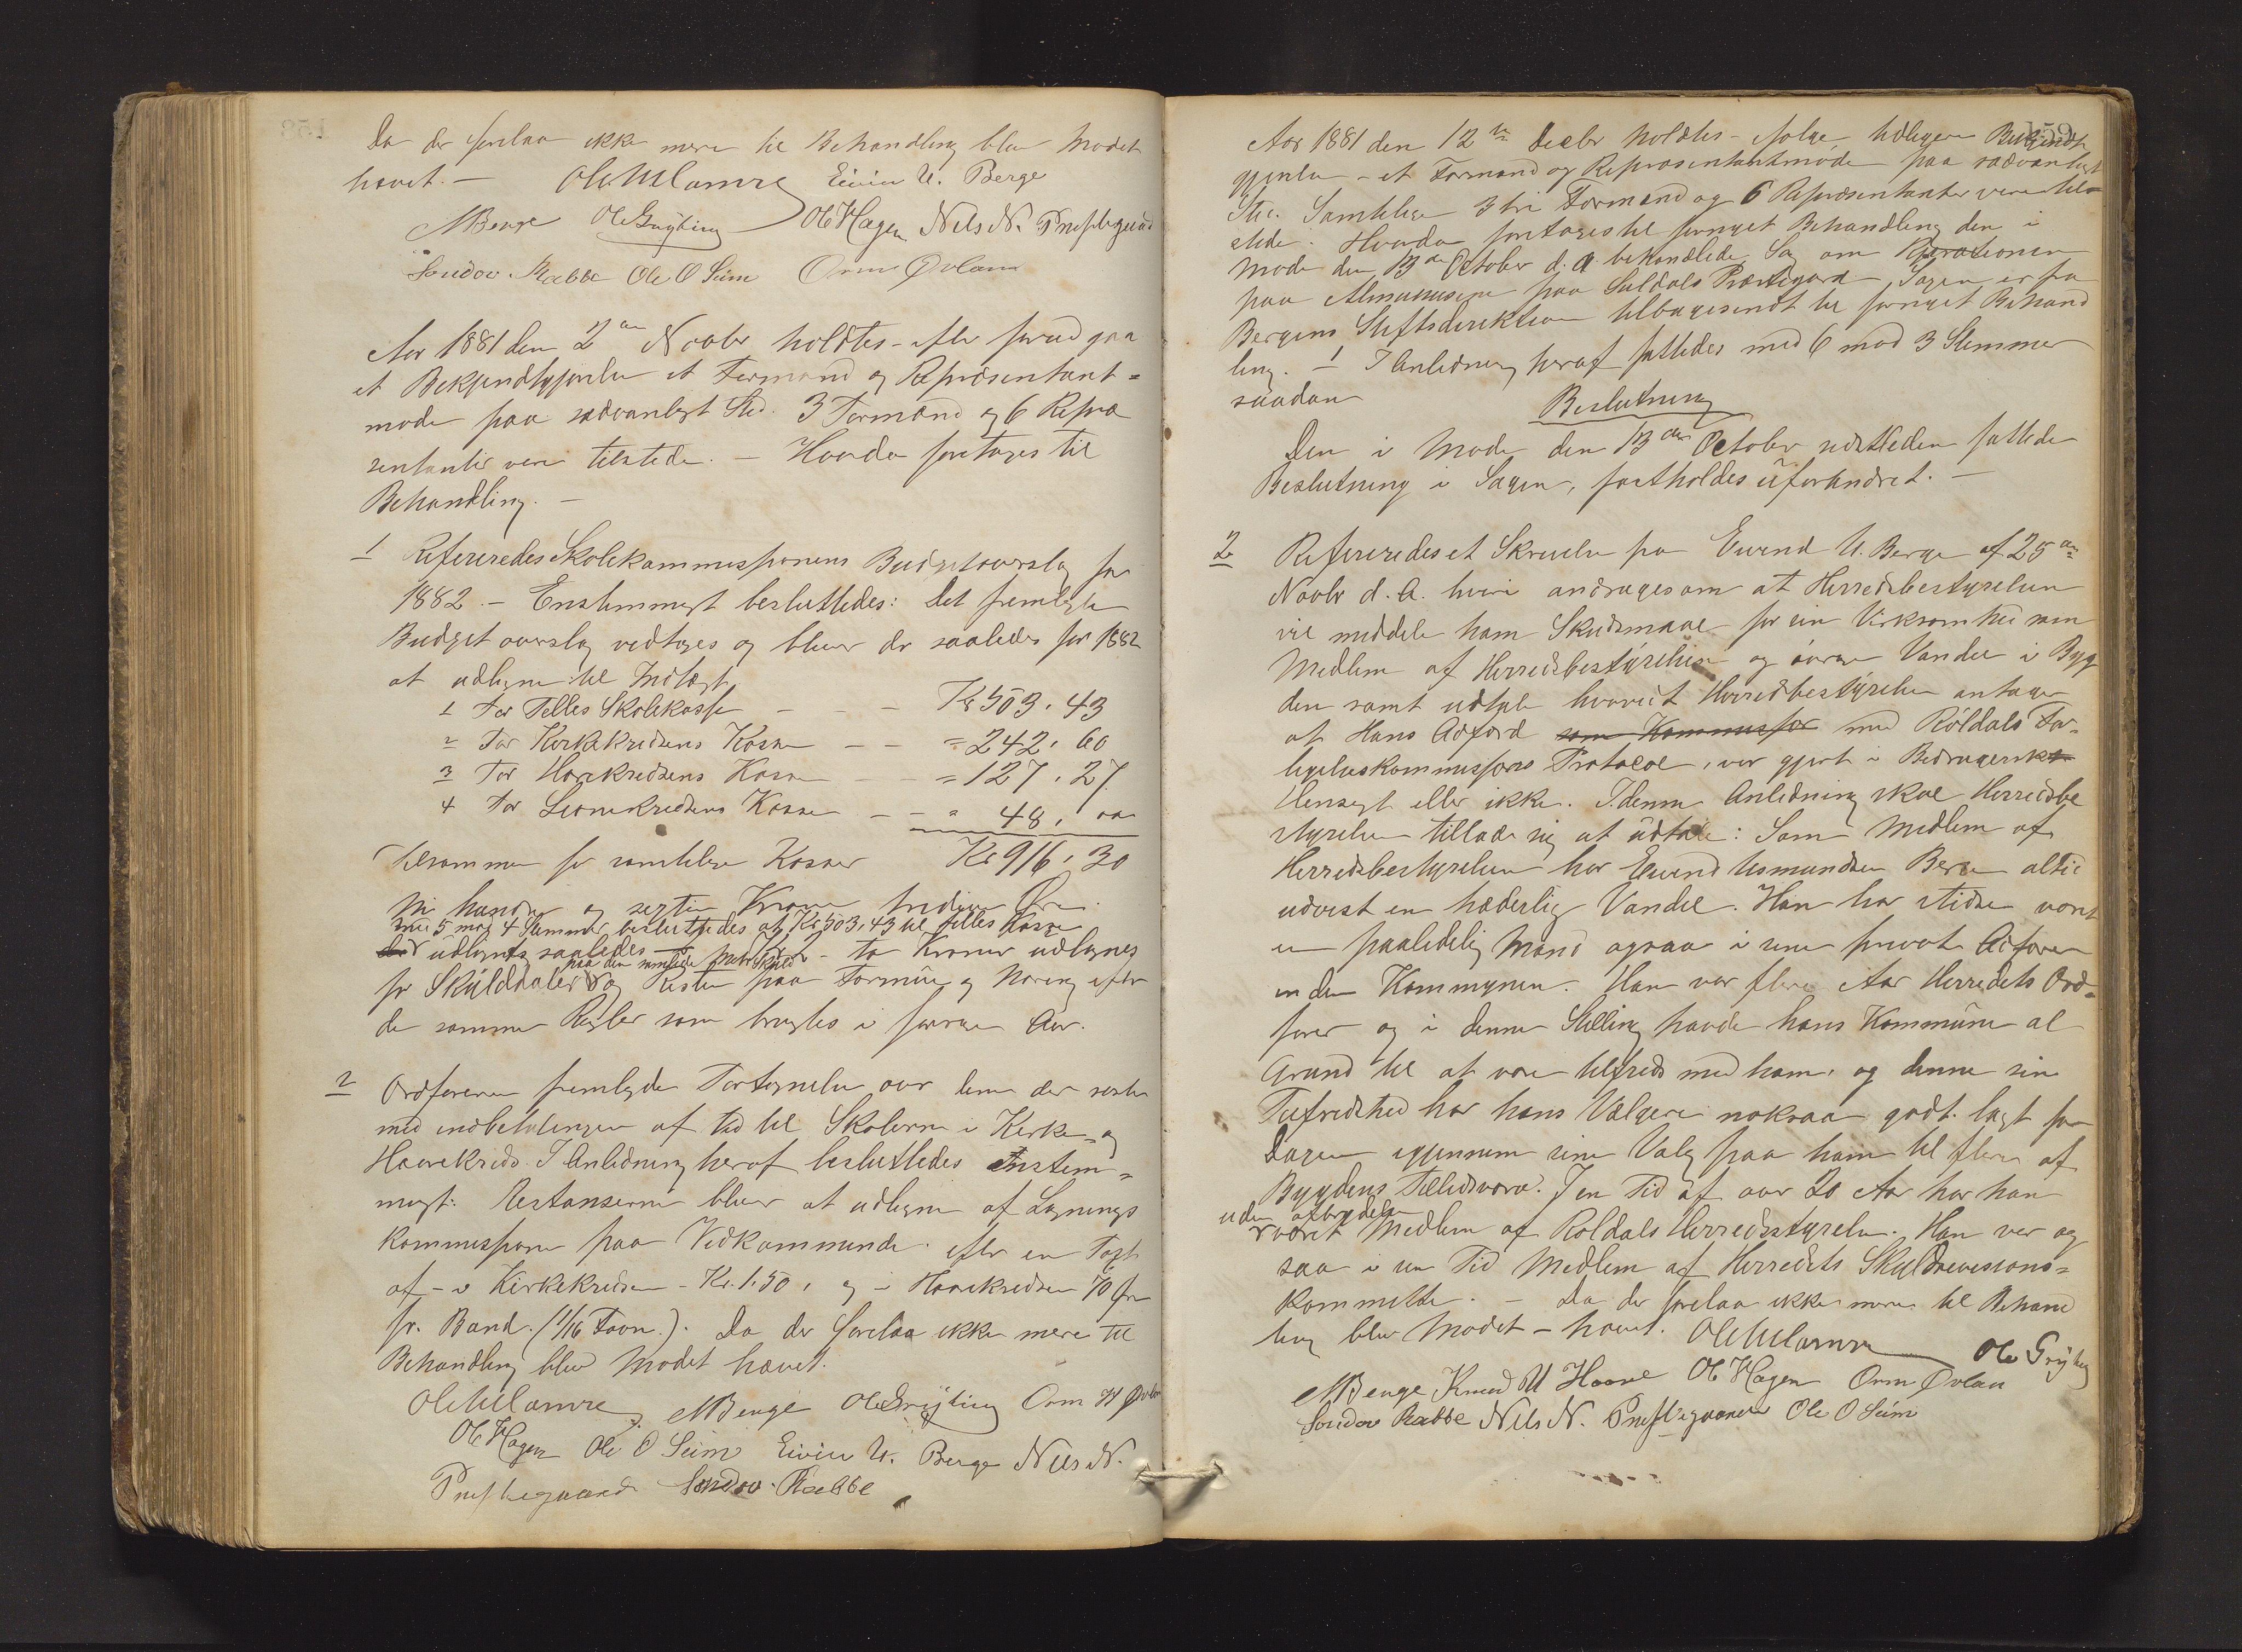 Da der forelaa ikke mere til Behandling blev Mødet
hævet. — Ole M Lamvre Eivin U. Berge
MBerge Ole Gryting Ole Hagen Nils N. Prestegaard
Sondov Rabbe Ole O Seim Orm Øvland
Aar 1881 den 2den Novbr holdtes - efter forud gaa
et Bekjendtgjørelse et Formand og Repræsentant-
møde paa sædvanligt Sted. 3 Formænd og 6 Repræ
sentanter vare tilstede. — Hvorda foretoges til
Behandling. —
1 Refereredes Skolekommissionens Budgetoverslag for
1882. — Enstemmigt besluttedes: Det fremlagte
Budget overslag vedtages og bliver der saaledes for 1882
at udligne til Indtægt
1 For Felles Skolekasse - - - Kr 503,43
2 For Kirkekredsens Kasse - - = 242,60
3 For Horekredsens Kasse - - = 127,27
4 For Lione kredsens Kasse - - = 48, oo
Tilsammen for samtlige Kasser Kr 916,30
Ni hundre og sexten Kroner tredive Øre.
med 5 mod 4 Stemmer besluttedes at Kr 503,43 til Felles Kasse
udlignes saaledes to Kroner udlignes
paa den samlede Matr Skyld
pr Skylddaler og Resten paa Formue og Næring efter
de samme Regler som brugtes i forrige Aar.
2 Ordføreren fremlagde Fortegnelse over dem der rester
med indbetalingen af tid til Skolerne i Kirke- og
Haarekreds. I Anledning heraf besluttedes Enstem-
migt: Restanserne bliver at udligne af Lignings
kommissionen paa Vedkommende efter en Taxt
af - i Kirkekredsen - Kr. 1,50, og i Horekredsen 70 Øre
pr. Band. (1/16 Favn.). Da der forelaa ikke mere til
Behandling blev Mødet hævet.
Ole M Lamvre MBerge Ole Gryting Orm H Øvland
Ole Hagen Ole O Seim Eivin U. Berge Nils N.
Prestegaard Sondov Rabbe
Aar 1881 den 12te Decbr holdtes - ifølge tidligere Bekjendt
gjørelse - et Formand og Repræsentantmøde paa sædvanligt
Sted. Samtlige 3 tre Formænd og 6 Repræsentanter vare til-
stede. Hvorda foretoges til fornyet Behandling den i
Møde den 13de October d. A. behandlede Sag om Reparationen
paa Almuestuen paa Suldals Præstegard. Sagen er fra
Bergens Stiftsdirektion tilbagesendt til fornyet Behand
ling. 1 I Anledning heraf fattedes med 6 mod 3 Stemmer
saadan
Beslutning
Den i Møde den 13de October sidstleden fattede
Beslutning i Sagen, fastholdes uforandret. —
2 Refereredes et Skrivelse fra Eivind U. Berge af 25de
Novbr d. A. hvori andrages om at Herredsbestyrelsen
vil meddele ham Skudsmaal for sin Virksomhed som
Medlem af Herredsbestyrelsen og øvrige Vandel i Byg
den samt udtale hvorvidt Herredbestyrelsen antager
at Hans Adfærd som Kommissær med Røldals For-
ligelseskommissions Protocol, var gjort i Bedragersk
Hensegt eller ikke. I denne Anledning skal Herredsbe
styrelsen tillade sig at udtale: Som Medlem af
Herredsbestyrelsen har Eivind Usmundsen Berge altid
udvist en hæderlig Vandel. Han har stidse været
en paalidelig Mand ogsaa i sine privat Adfærd
inden Kommunen. Han var flere Aar Herredets Ord-
fører og i denne Stilling havde hans Kommune al
Grund til at være tilfreds med ham, og denne sin
Tilfredshed har hans Vælgere noksaa godt lagt for
Dagen igjennem sine Valg paa ham til flere af
Bygdens Tillidshverv. I en Tid af over 20 Aar har han
uden afbrydelse
været Medlem af Røldals Herredsstyrelse. Han var og
saa i en Tid Medlem af Herredets Skyldrevisions-
kommitte. — Da der forelaa ikke mere til Behand
ling blev Mødet - hævet. Ole M Lamvre Ole Gryting
MBerge Knud U Haare Ole Hagen Orm Øvland
Sondov Rabbe Nils N. Prestegaard Ole O Seim